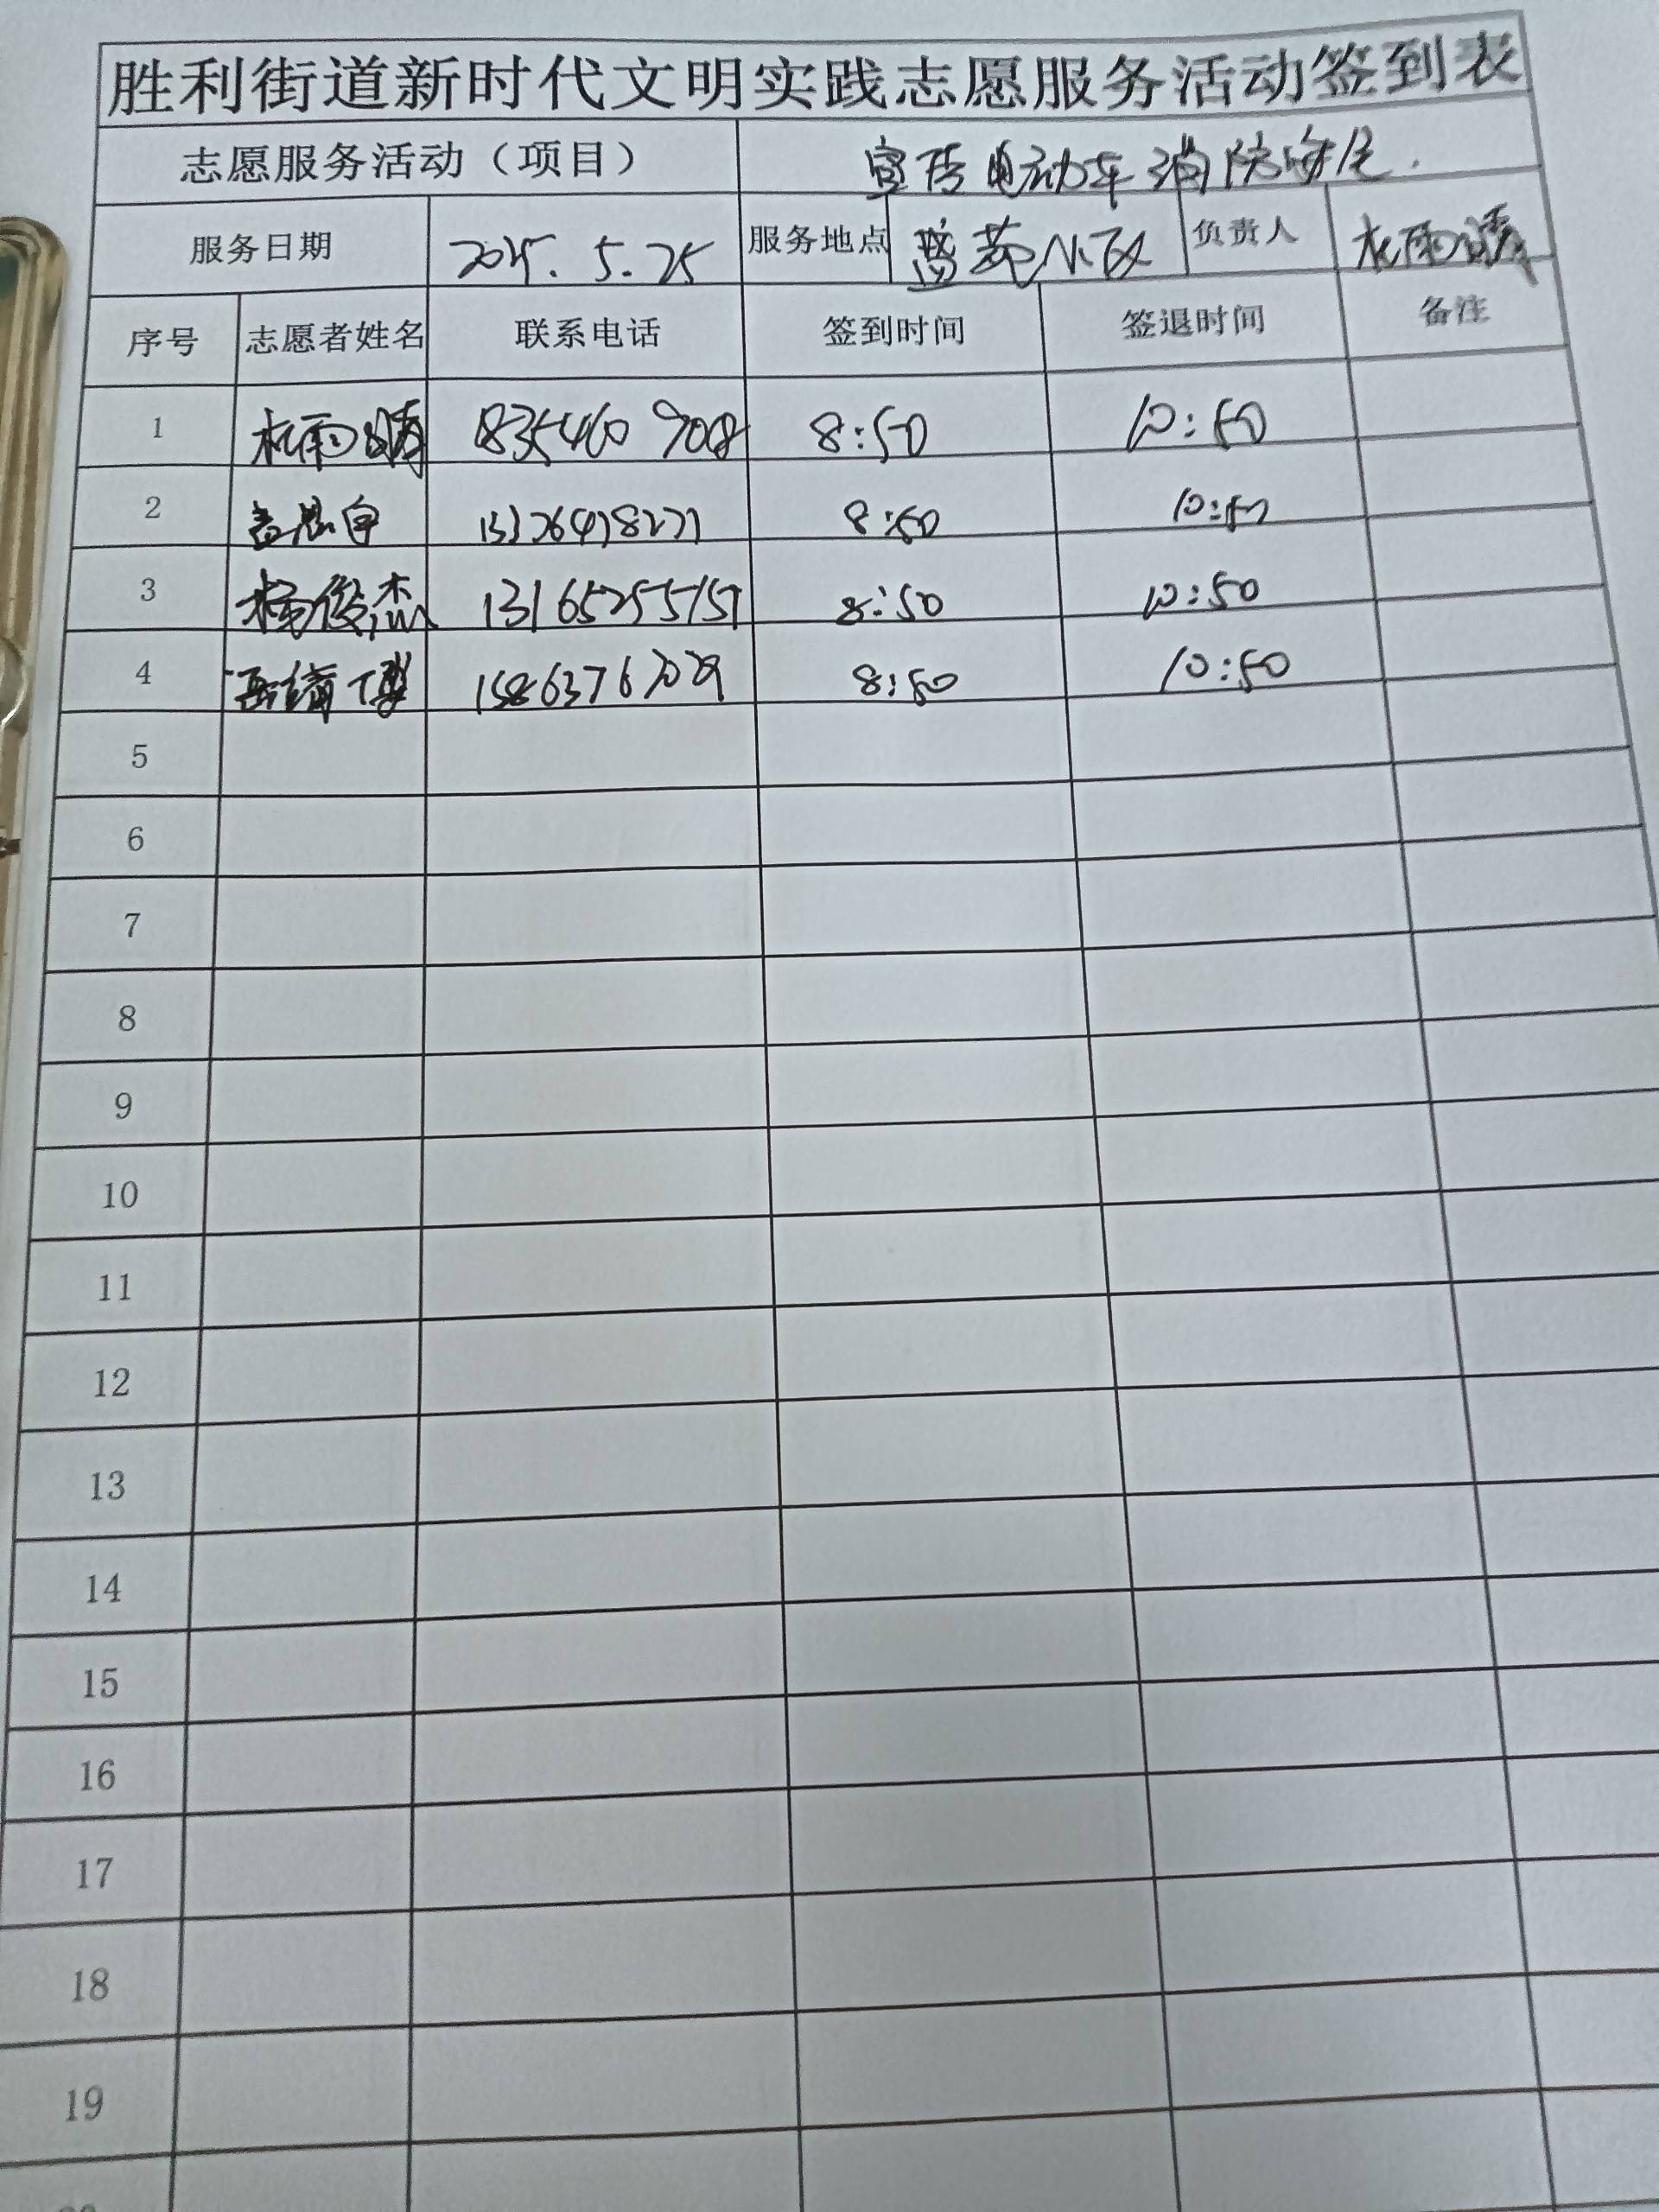 胜利街道新时代文明实践志愿服务活动签到表
志愿服务活动（项目） 宣传电动车消防
服务日期 2025.5.25 服务地点 蓝苑小区 负责人 杜雨晴
序号 志愿者姓名 联系电话 签到时间 签退时间 备注
1 杜雨晴 8:50 10:50
2 8:50 10:50
3 杨俊杰 13165255151 8:50 10:50
4 8:50 10:50
5
6
7
8
9
10
11
12
13
14
15
16
17
18
19